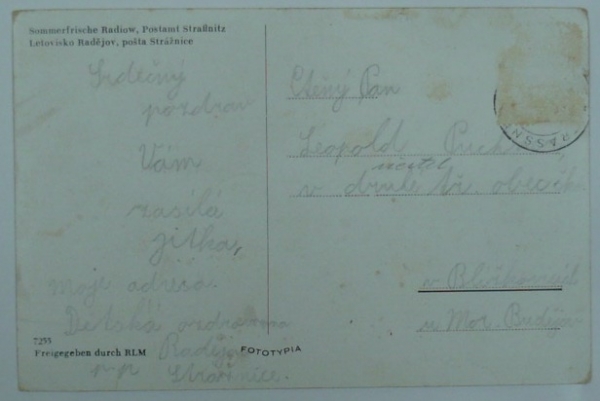 Sommerfrische Radiow, Postamt Straßnitz
Letovisko Radějov, pošta Strážnice
Srdečný
pozdrav
Vám
zasílá
Jitka,
moje adresa
Dětská
Radějov
Strážnice.
7255
Freigegeben durch RLM
FOTOTYPIA
Ctěný Pan
Leopold
učitel
v druhé tř. obecné
u Mor. Budějov